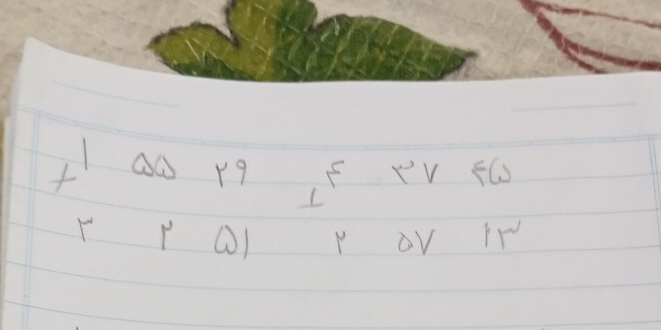 + ۱ ۵۵ ۲۹ + ۴ ۳۷ ۴۵
۳ ۲ ۵۱ ۲ ۵۷ ۱۳